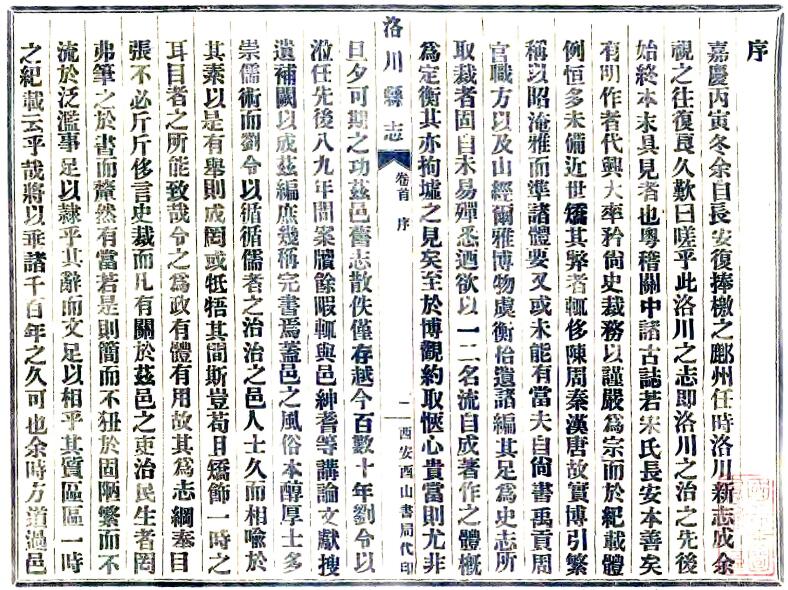 序
嘉慶丙寅冬余自長安復捧檄之鄜州任時洛川新志成余
視之往復良久歎曰嗟乎此洛川之志即洛川之治之先後
始終本末具見者也粵稽關中諸古誌若宋氏長安本善矣
有明作者代興大率矜尙史裁務以謹嚴爲宗而於紀載體
例恒多未備近世矯其弊者輒侈陳周秦漢唐故實博引繁
稱以昭淹雅而準諸體要又或未能有當夫自尙書禹貢周
官職方以及山經爾雅博物虞衡怡遺諸編其足爲史志所
取裁者固自未易殫悉迺欲以一二名流自成著作之體槪
爲定衡其亦拘墟之見矣至於博觀約取愜心貴當則尤非
洛川縣志
卷首 序
二
西安酉山書局代印
旦夕可期之功茲邑舊志散佚僅存越今百數十年劉令以
涖任先後八九年間案牘餘暇輒與邑紳耆等講論文獻搜
遺補闕以成茲編庶幾稱完書焉蓋邑之風俗本醇厚士多
崇儒術而劉令以循循儒者之治治之邑人士久而相喩於
其素以是有舉則成罔或牴牾其間斯豈苟且矯飾一時之
耳目者之所能致哉令之爲政有體有用故其爲志綱奉目
張不必斤斤侈言史裁而凡有關於茲邑之吏治民生者罔
弗筆之於書而釐然有當若是則簡而不狃於固陋繁而不
流於泛濫事足以隸乎其辭而文足以相乎其質區區一時
之紀載云乎哉將以垂諸千百年之久可也余時方道過邑